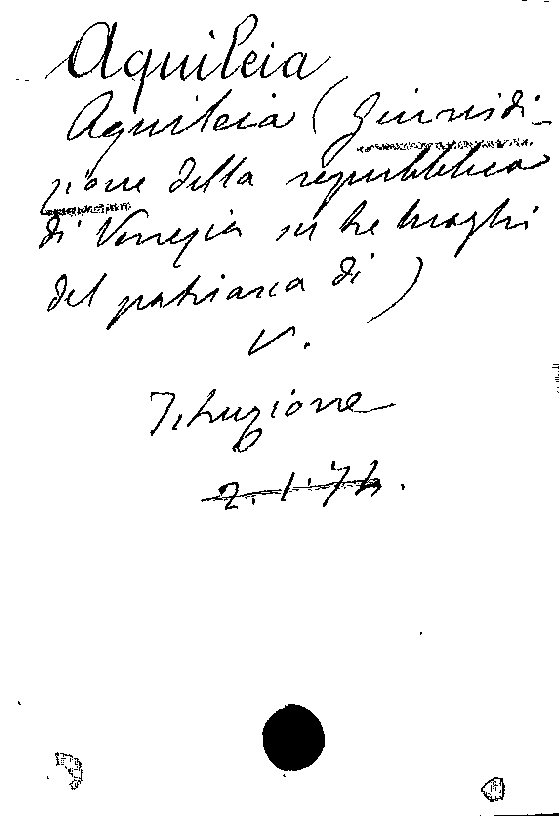 Aquileia
Aquileia (Giurisdi-
zione della repubblica
di Venezia su tre luoghi
del patriarca di)
V.
Istruzione
2.1.74.